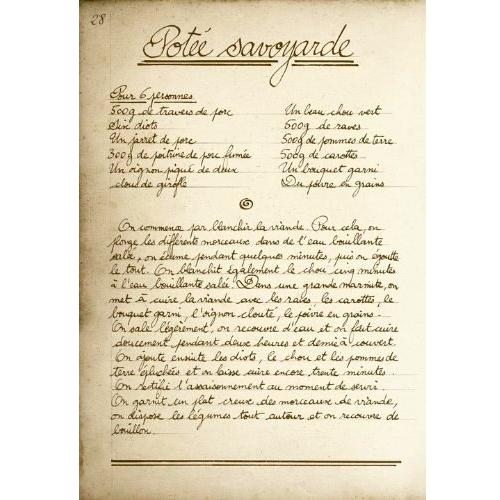 28
Potée savoyarde
Pour 6 personnes
500g de travers de porc
Six diots
Un jarret de porc
300g de poitrine de porc fumée
Un oignon piqué de deux
clous de girofle
Un beau chou vert
500g de raves
500g de pommes de terre
500g de carottes
Un bouquet garni
Du poivre en grains
On commence par blanchir la viande. Pour cela, on
plonge les différents morceaux dans de l'eau bouillante
salée, on écume pendant quelques minutes, puis on égoutte
le tout. On blanchit également le chou cinq minutes
à l'eau bouillante salée. Dans une grande marmite, on
met à cuire la viande avec les raves, les carottes, le
bouquet garni, l'oignon clouté, le poivre en grains.
On sale légèrement, on recouvre d'eau et on fait cuire
doucement pendant deux heures et demie à couvert.
On ajoute ensuite les diots, le chou et les pommes de
terre épluchées et on laisse cuire encore trente minutes.
On rectifie l'assaisonnement au moment de servir.
On garnit un plat creux des morceaux de viande,
on dispose les légumes tout autour et on recouvre de
bouillon.